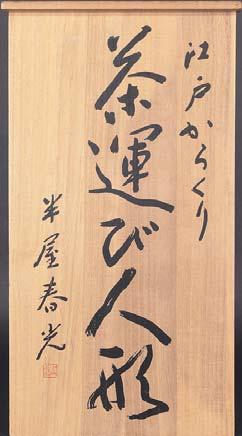 江戸からくり
茶運び人形
半屋春光